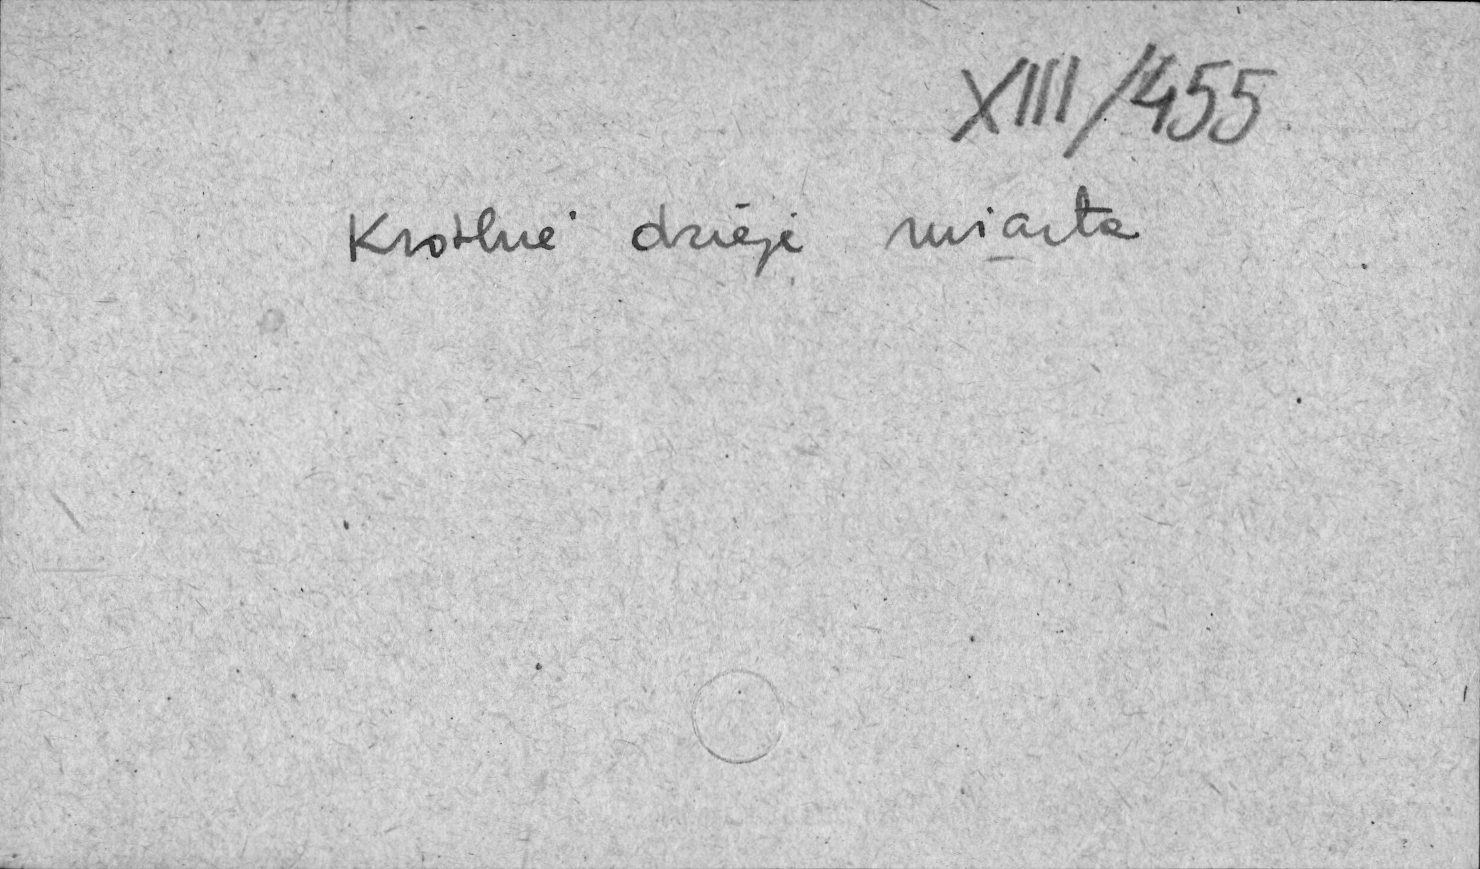 XIII/455
Krótkie dzieje miasta